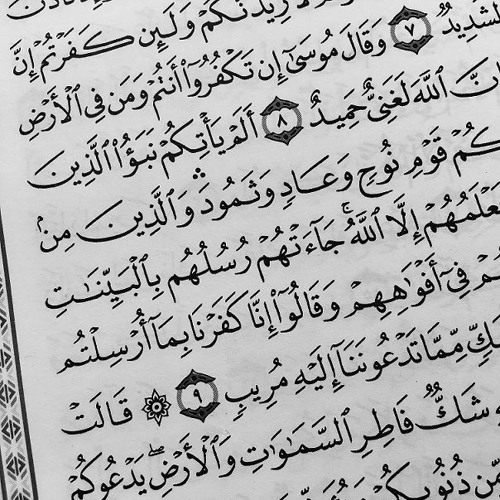 لَأَزِيدَنَّكُمْ وَلَئِن كَفَرْتُمْ إِنَّ
لَشَدِيدٌ ٧ وَقَالَ مُوسَىٰٓ إِن تَكْفُرُوٓا۟ أَنتُمْ وَمَن فِى ٱلْأَرْضِ
ٱللَّهَ لَغَنِىٌّ حَمِيدٌ ٨ أَلَمْ يَأْتِكُمْ نَبَؤُا۟ ٱلَّذِينَ
قَوْمِ نُوحٍ وَعَادٍ وَثَمُودَ ۛ وَٱلَّذِينَ مِنۢ
يَعْلَمُهُمْ إِلَّا ٱللَّهُ ۚ جَآءَتْهُمْ رُسُلُهُم بِٱلْبَيِّنَـٰتِ
فِىٓ أَفْوَٰهِهِمْ وَقَالُوٓا۟ إِنَّا كَفَرْنَا بِمَآ أُرْسِلْتُم
مِّمَّا تَدْعُونَنَآ إِلَيْهِ مُرِيبٍ ٩ ۞ قَالَتْ
شَكٌّ فَاطِرِ ٱلسَّمَـٰوَٰتِ وَٱلْأَرْضِ ۖ يَدْعُوكُمْ
مِّن ذُنُوبِكُمْ